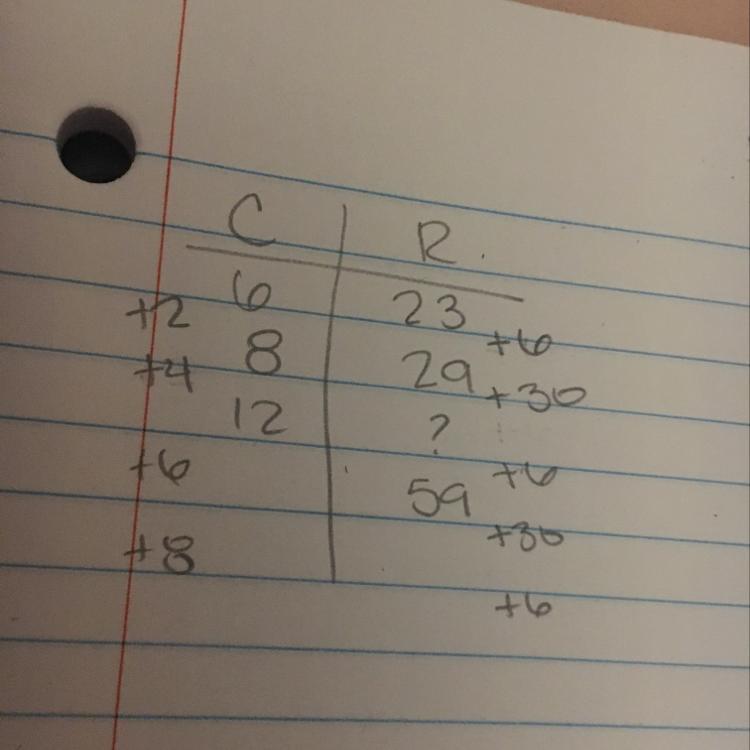 C R.
6 23
+2 +6
8 29
+4 +30
12 ?
+6 +6
59
+30
+8
+6